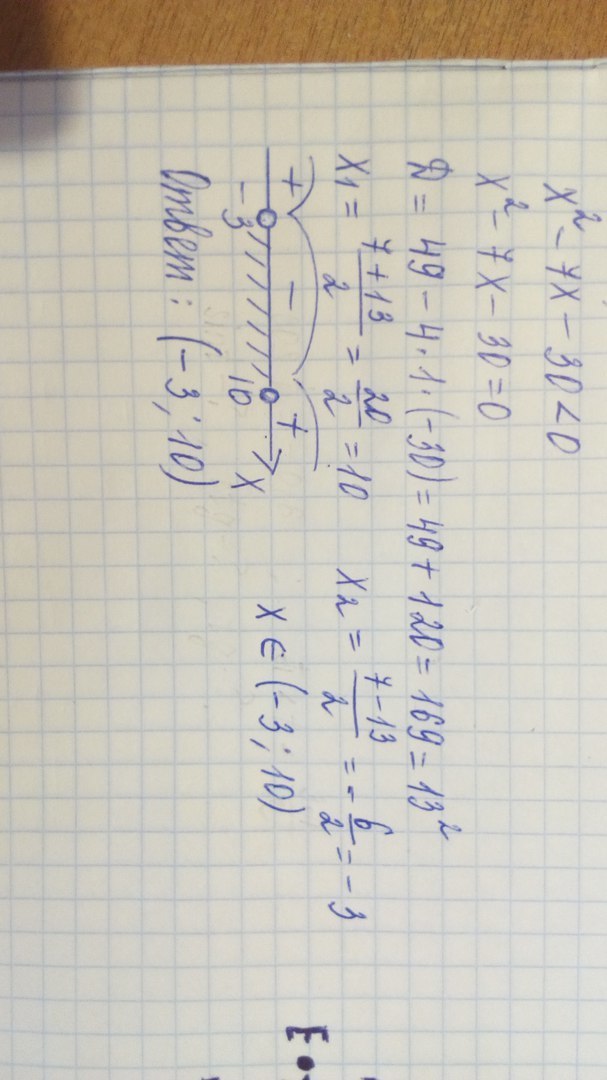 x² - 7x - 30 < 0
x² - 7x - 30 = 0
D = 49 - 4·1·(-30) = 49 + 120 = 169 = 13²
x1 = (7+13)/2 = 20/2 = 10 x2 = (7-13)/2 = -6/2 = -3
+ - +
-3 10 x x ∈ (-3; 10)
Ответ: (-3; 10)
E.